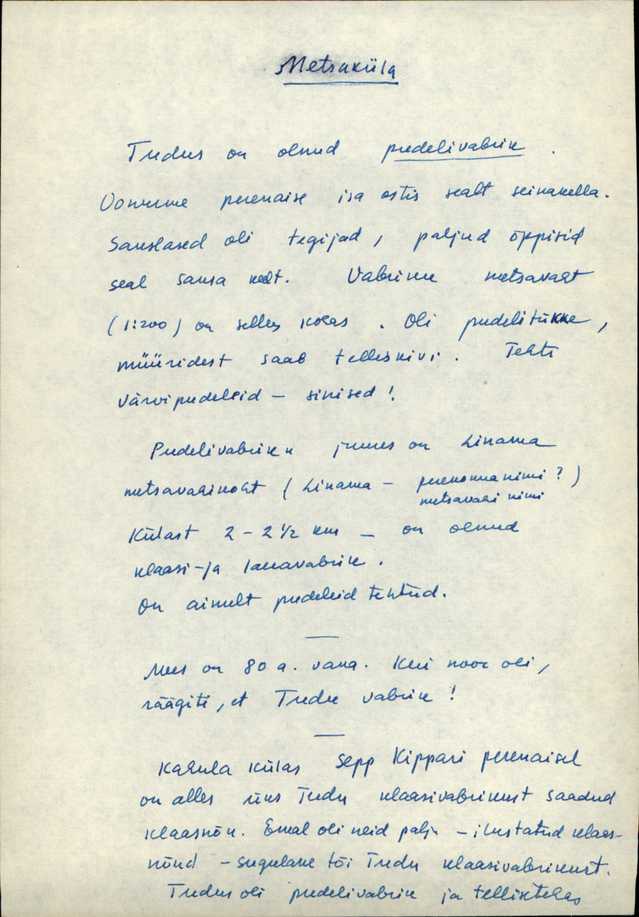 Metsaküla
Tudus on olnud pudelivabrik.
perenaise isa ostis sealt seinakella.
Sakslased oli tegijad, paljud õppisid
seal saksa keelt. Vabriku metsavaht
(1:200) on selles kohas. Oli pudelitükke,
müüridest saab telleskivi. Tehti
värvipudeleid – sinised!
Pudelivabriku juures on Linama
metsavahikoht (Linama – perekonnanimi?)
metsavahi nimi
Külast 2 – 2 1/2 km – on olnud
klaasi- ja vabrik.
On ainult pudeleid tehtud.
Mees on 80 a. vana. Kui noor oli,
räägiti, et Tudu vabrik!
Kakula külas Sepp Kippari perenaisel
on alles üks Tudu klaasivabrikust saadud
klaasnõu. Emal oli neid palju – ilustatud klaas-
nõud – sugulane tõi Tudu klaasivabrikust.
Tudus oli pudelivabrik ja